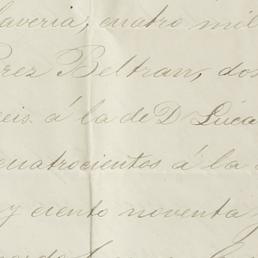 laveria, cuatro mil
Perez Beltran, dos
seis. á la de D Lúca
cuatrocientos á la
y ciento noventa